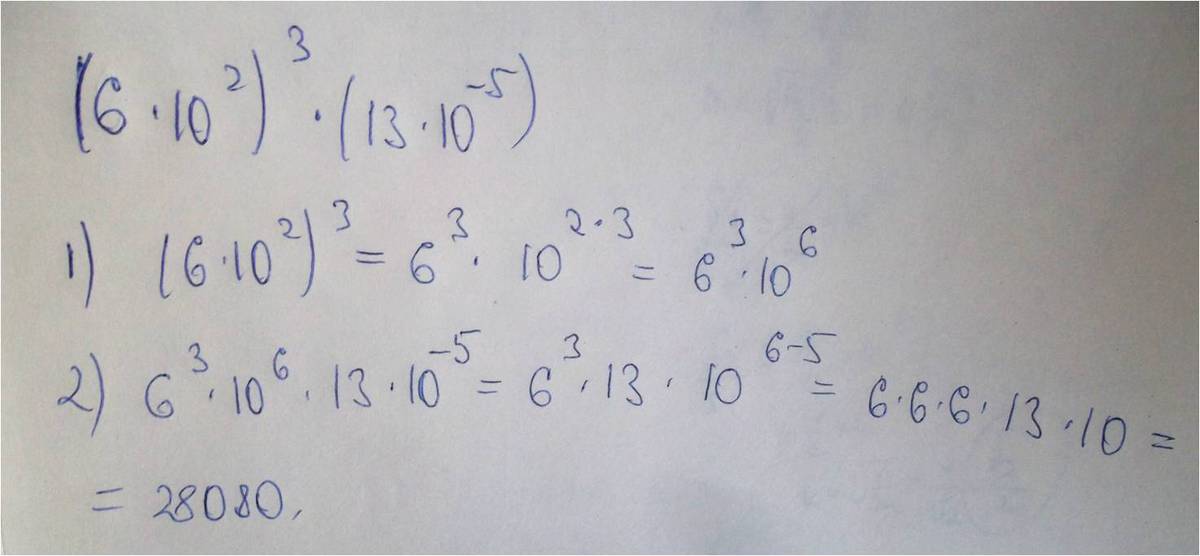 (6·10²)³·(13·10⁻⁵)
1) (6·10²)³ = 6³·10²˙³ = 6³·10⁶
2) 6³·10⁶·13·10⁻⁵ = 6³·13·10⁶⁻⁵ = 6·6·6·13·10 =
= 28080.